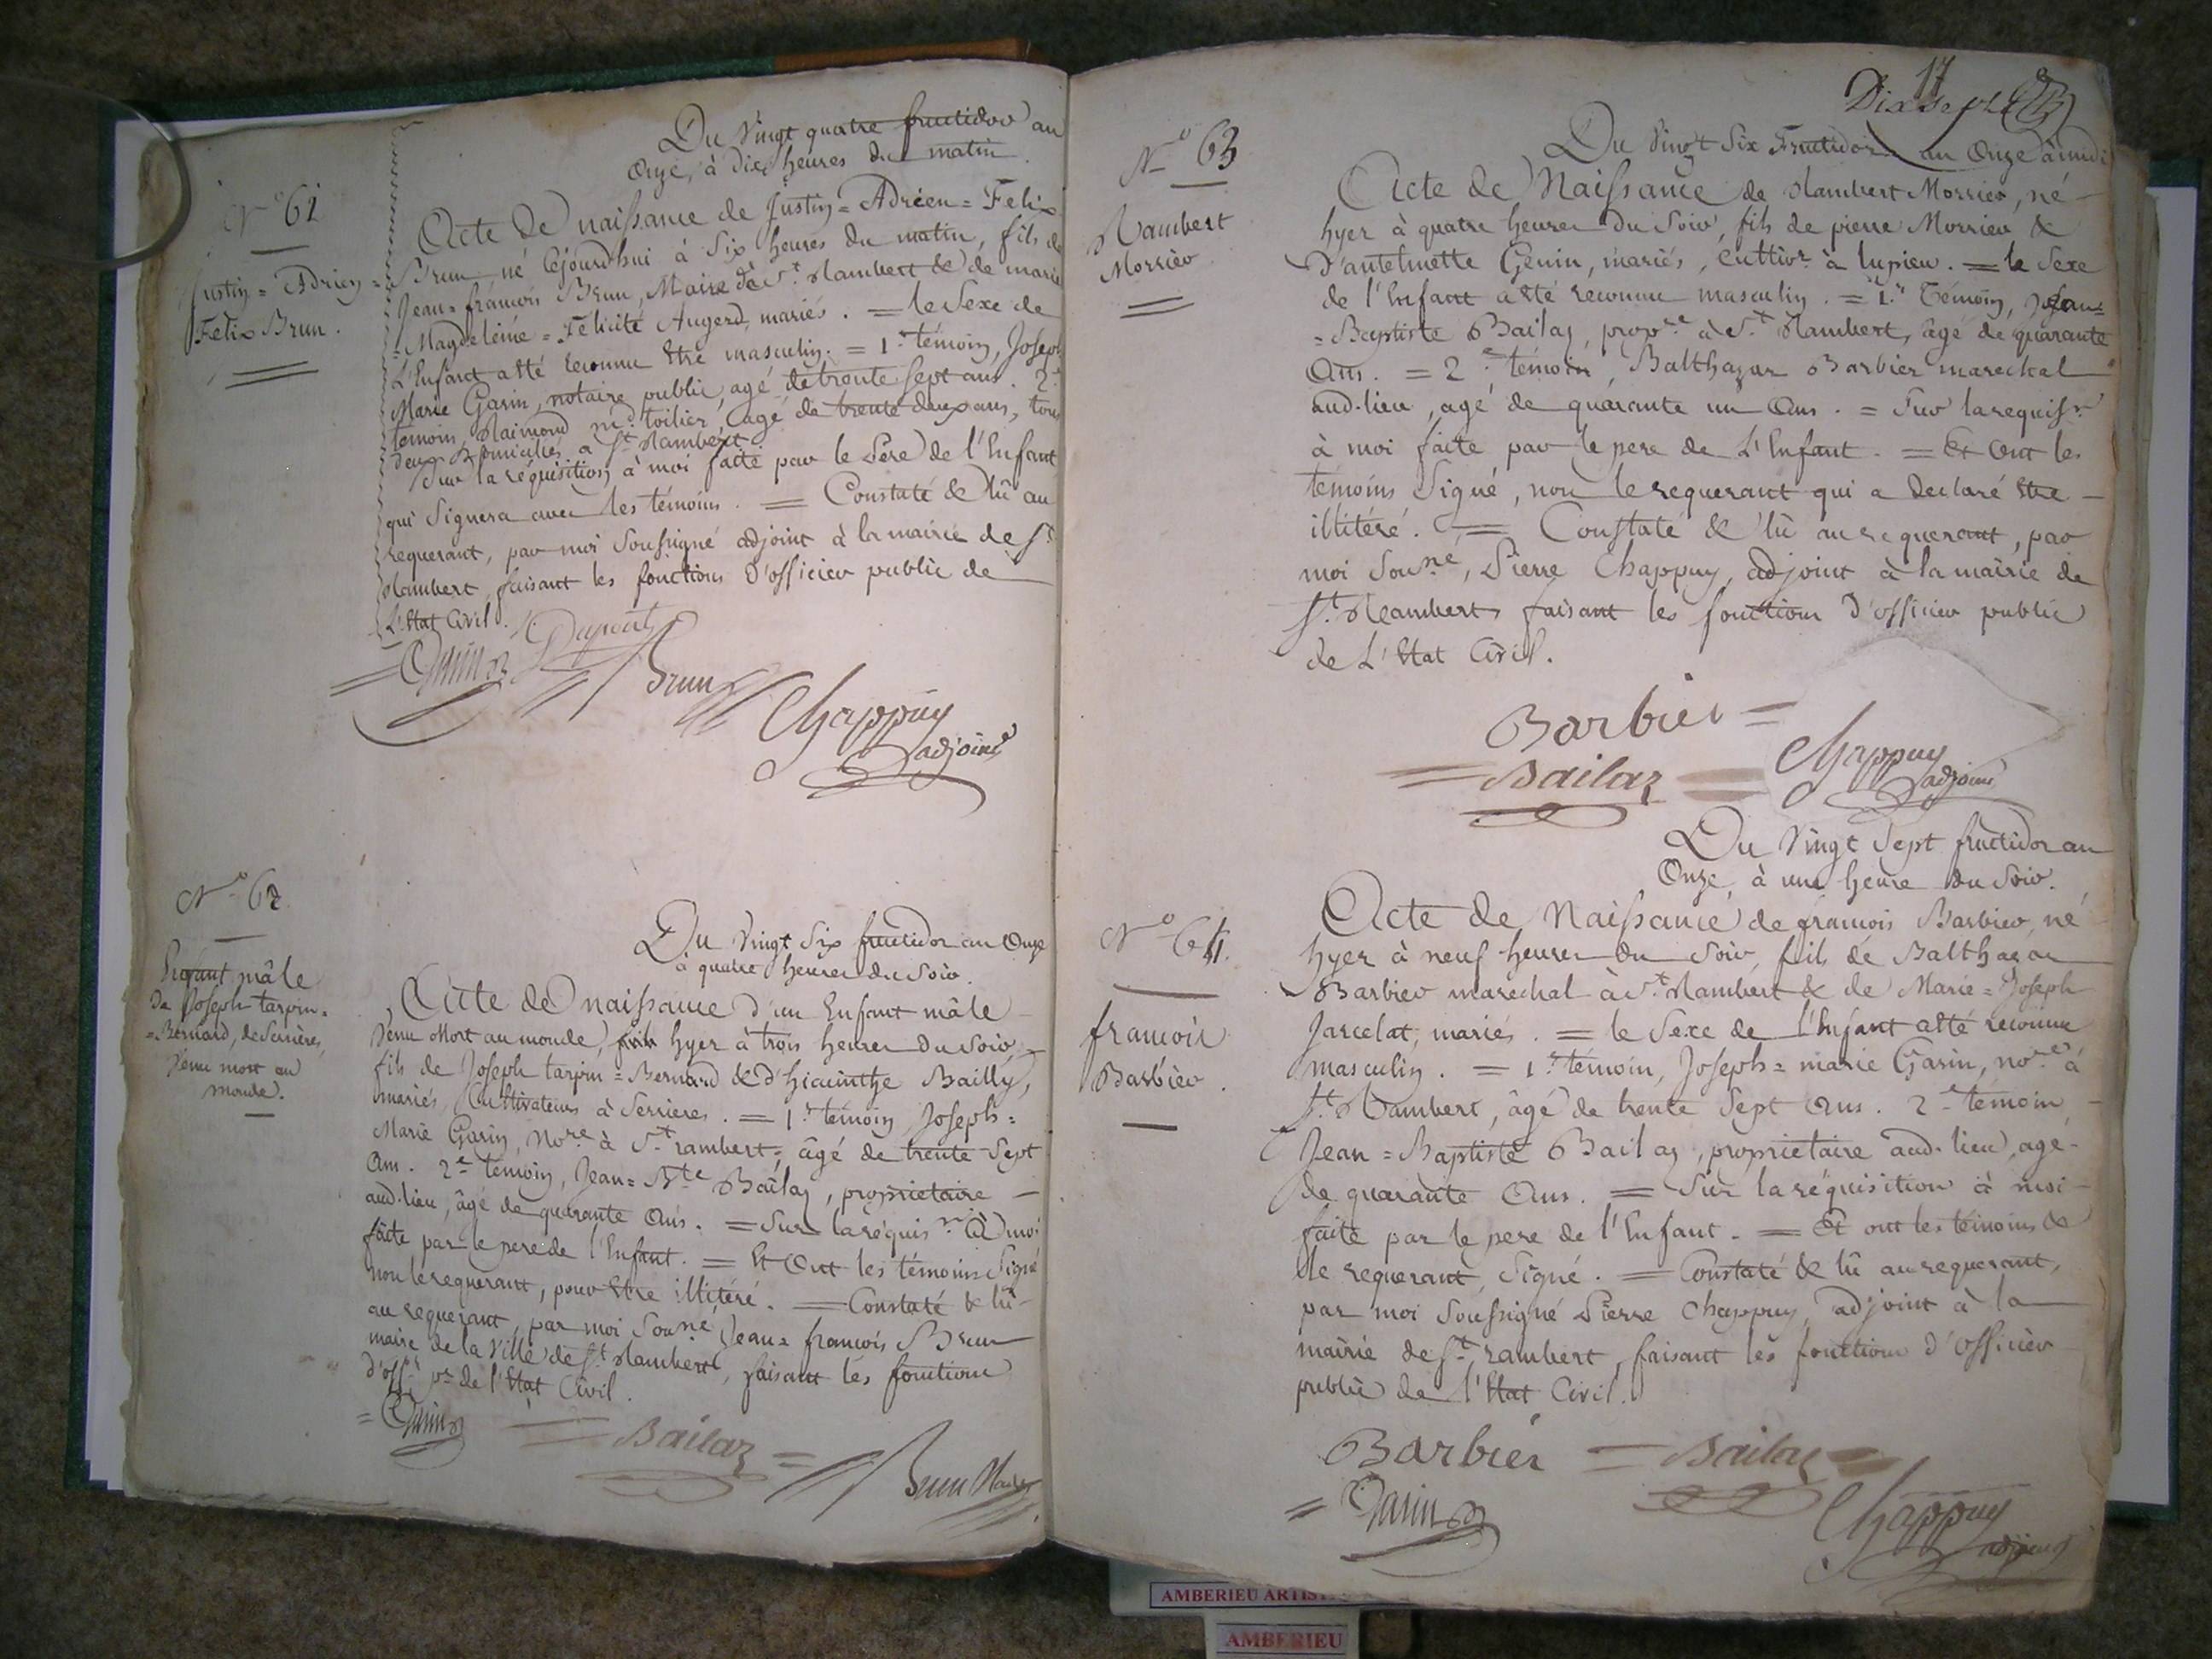 Du Vingt quatre fructidor an
onze, à dix heures du matin.
N.o 61
Justin = Adrien =
Felix Brun.
Acte de naissance de Justin = Adrien = Felix
Brun né cejourd'hui à six heures du matin, fils de
Jean = françois Brun, Maire de St. Rambert & de marie
= Magdeleine = Felicité Augerd, mariés. = le Sexe de
L'Enfant a été reconnu être masculin. = 1.r témoin, Joseph
Marie Garin, notaire public, agé de trente sept ans. 2.e
témoin, Raimond md. toilier, agé de trente deux ans, tous
deux domiciliés à St. Rambert.
Sur la réquisition à moi faite par le Père de l'Enfant
qui Signera avec les témoins. = Constaté & lû au
requerant, par moi Soussigné adjoint à la mairie de St.
Rambert faisant les fonctions d'officier public de
L'Etat Civil.
Dupont
Garin Brun
Chappuy
adjoint
N.o 62
Enfant mâle
De Joseph tarpin =
= Bernard, de Serrières,
Venu mort au
monde.
Du Vingt Six fructidor an Onze
à quatre heures du Soir.
Acte de naissance d'un Enfant mâle
Venu Mort au monde, hyer à trois heures du Soir,
fils de Joseph tarpin = Bernard & d'hiacinthe Bailly,
mariés, Cultivateurs à Serrieres. = 1.r témoin, Joseph =
Marie Garin, Nore à St. rambert, âgé de trente Sept
Ans. 2.e témoin, Jean = Bte Bailaz, propriétaire
aud. lieu, âgé de quarante Ans. = Sur la réquis.on à moi
faite par le pere de l'Enfant. = Et Ont les témoins Signé
non le requerant, pour Etre illitéré. = Constaté & lû
au requerant, par moi Sousné Jean = françois Brun
maire de la Ville de St. Rambert, faisant les fonctions
d'off.r p.c de l'Etat Civil.
= Garin = Bailaz = Brun Maire
17
Dixsept
N.o 63
Rambert
Morrier
Du Vingt Six Fructidor an Onze à midi
Acte de Naissance de Rambert Morrier, né
hyer à quatre heures du Soir, fils de pierre Morrier &
D'antelmette Genin, mariés, cultivr. à lupieu. = le Sexe
de l'Enfant a été reconnu masculin. = 1.r Témoin, Jean =
= Baptiste Bailaz, propre à St. Rambert, âgé de quarante
Ans. = 2.e témoin, Balthazar Barbier marechal
aud. lieu, agé de quarante un Ans. = Sur la requis.on
à moi faite par le pere de L'Enfant. = Et Ont les
témoins Signé, non le requerant qui a declaré Etre
illitéré. = Constaté & lû au requerant, par
moi Sousné, Pierre Chappuy, adjoint à la mairie de
St. Rambert faisant les fonctions d'officier public
de L'Etat Civil.
Barbier =
= Bailaz = Chappuy
adjoint
Du Vingt Sept fructidor an
Onze, à une heure du Soir.
N.o 64.
françois
Barbier.
Acte de Naissance de françois Barbier, né
hyer à neuf heures du Soir, fils de Balthazar
Barbier marechal à St. Rambert & de Marie = Joseph
Jarcelat, mariés. = le Sexe de l'Enfant a été reconnu
masculin. = 1.r témoin, Joseph = marie Garin, nore à
St. Rambert, âgé de trente Sept Ans. 2.e témoin
Jean = Baptiste Bailaz, proprietaire aud. lieu, agé
de quarante Ans. = Sur la réquisition à moi
faite par le pere de l'Enfant. = Et ont les témoins &
le requerant, Signé. = Constaté & lû au requerant,
par moi Soussigné Pierre Chappuy, adjoint à la
mairie de St. rambert, faisant les fonctions d'officier
public de l'Etat Civil.
Barbier = Bailaz =
= Garin Chappuy
adjoint
AMBERIEU
AMBERIEU